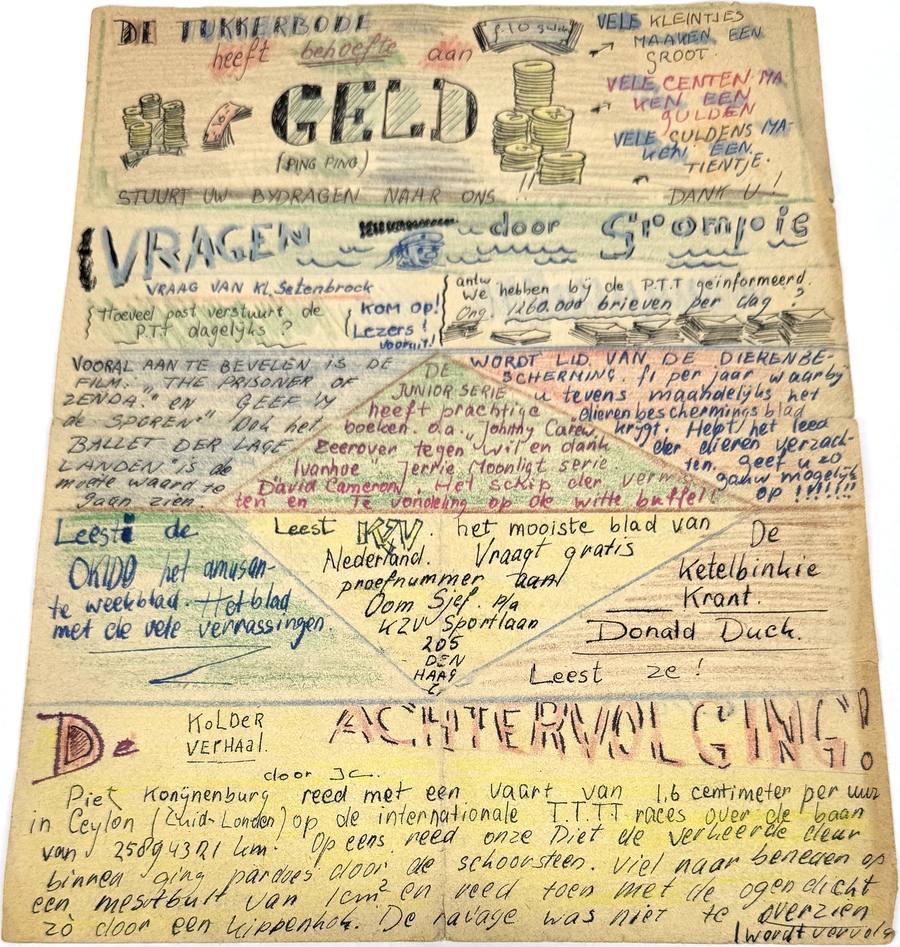 DE TUKKERBODE
heeft behoefte aan
GELD
(PING PING)
f. 10 gulden
VELE KLEINTJES
MAAKEN EEN
GROOT.
VELE CENTEN MA
KEN EEN
GULDEN
VELE GULDENS MA-
KEN EEN
TIENTJE.
STUURT UW BYDRAGEN NAAR ONS !!
DANK U!
VRAGEN door Grompie
VRAAG VAN kl. Setenbrock
Hoeveel post verstuurt de
P.T.T dagelijks ?
KOM OP!
Lezers!
VOORUIT!
antw
We hebben bij de P.T.T geïnformeerd.
Ong. 1260.000 brieven per dag ?
VOORAL AAN TE BEVELEN IS DE
FILM. "THE PRISONER OF
ZENDA." en GEEF 'M
de SPOREN" Ook het
BALLET DER LAGE
LANDEN." is de
moeite waard te
gaan zien.
DE
JUNIOR SERIE
heeft prachtige
boeken. o.a. "Johnny Carew
Zeerover tegen wil en dank
"Ivanhoe" Jerrie Moonligt serie
"David Cameron", Het schip der vermis
ten en Te vondeling op de witte buffel!
WORDT LID VAN DE DIERENBE-
SCHERMING. f1 per jaar waarby
u tevens maandelijks het
dierenbeschermingsblad
krijgt. Helpt het leed
der dieren verzach-
ten. geef u zo
gauw mogelijk
op !!!!!!!
Leest de
OKIDO het amusan-
te weekblad. Het blad
met de vele verrassingen
Leest KZV. het mooiste blad van
Nederland. Vraagt gratis
proefnummer aan
Oom Sjef. p/a
KZV Sportlaan
205
DEN
HAAG
De
Ketelbinkie
Krant.
Donald Duck.
Leest ze!
De KOLDER
VERHAAL.
ACHTERVOLGING!
door JC.
Piet Konijnenburg reed met een vaart van 1,6 centimeter per uur
in Ceylon (Zuid-Londen) op de internationale T.T.T.T races over de baan
van 25894321 km. Opeens reed onze Piet de verkeerde deur
binnen ging pardoes door de schoorsteen. viel naar beneden op
een mestbult van 1cm² en reed toen met de ogen dicht
zo door een kippenhok. De ravage was niet te overzien
(wordt vervolg